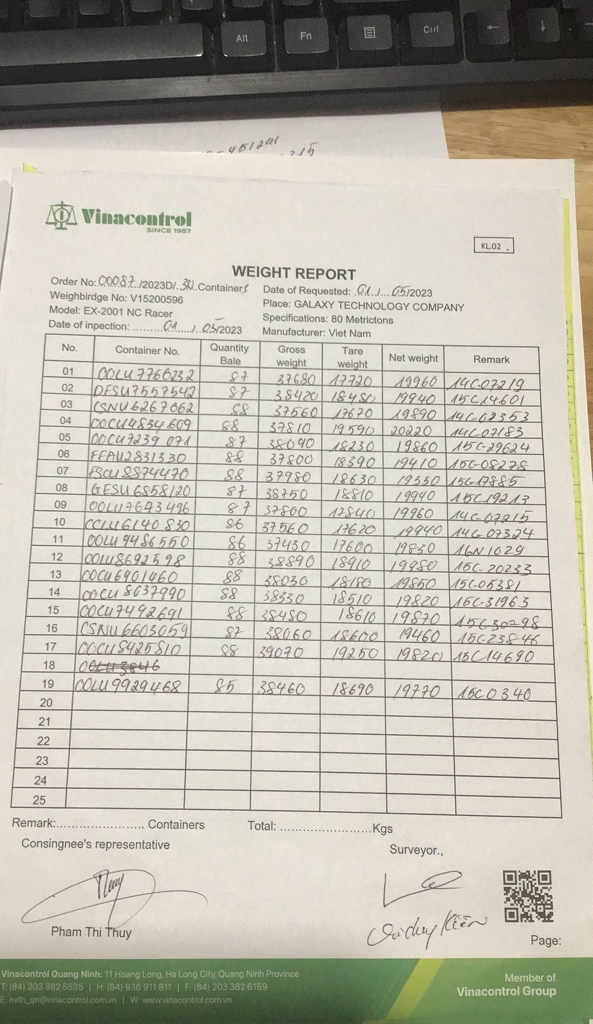 Alt
Fn
Ctrl
Vinacontrol
SINCE 1957
KL.02
WEIGHT REPORT
Order No: 00087 /2023D/ 30 Containers
Date of Requested: 01 / 05/2023
Weighbirdge No: V15200596
Place: GALAXY TECHNOLOGY COMPANY
Model: EX-2001 NC Racer
Specifications: 80 Metrictons
Date of inpection: ......... 01 / 05/2023
Manufacturer: Viet Nam
No. Container No. Quantity Bale Gross weight Tare weight Net weight Remark
01 OOLU7766232 87 37680 17720 19960 14C07219
02 DFSU7557542 87 38420 18480 19940 15C14601
03 CSNU6267062 88 37560 17670 19890 14C07353
04 OOCU4834609 88 37810 19590 20220 14C07183
05 OOCU7239071 87 38090 18230 19860 15C-29624
06 FFAU2831330 88 37800 18390 19410 15C-08278
07 88 37980 18630 19350 15C-17885
08 GESU6858120 87 38750 18810 19940 15C19213
09 OOLU7643496 87 37800 17840 19960 14C-07215
10 86 37560 17620 19940 14C-07324
11 OOLU9486550 86 37430 17600 19830 16N1029
12 OOLU8692598 88 38890 18910 19980 15C-20233
13 OOCU6901460 88 38030 18180 19850 15C05381
14 OOCU8037990 88 38330 18510 19820 15C-31963
15 OOCU7492691 88 38480 18610 19870 15C30298
16 CSNU6603059 87 38060 18600 19460 15C23846
17 OOCU8425810 88 39070 19250 19820 15C14690
18
19 OOLU9929468 85 38460 18690 19770 15C0340
20
21
22
23
24
25
Remark:....................... Containers Total: ........................Kgs
Consingnee's representative
Surveyor.,
Pham Thi Thuy
Page:
Vinacontrol Quang Ninh: 11 Hoang Long, Ha Long City, Quang Ninh Province
T: (84) 203 382 5535 | H: (84) 936 911 811 | F: (84) 203 382 6169
E: nvth_qn@vinacontrol.com.vn | W: www.vinacontrol.com.vn
Member of
Vinacontrol Group